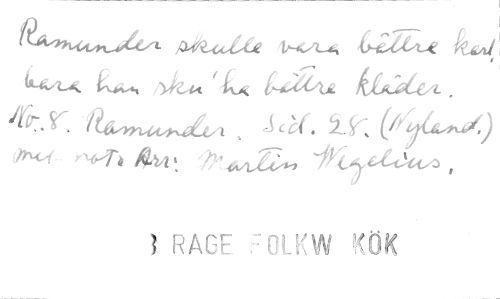 Ramunder skulle vara bättre karl,
bara han sku' ha bättre kläder.
No. 8. Ramunder. Sid. 28. (Nyland.)
med not. Arr: Martin Wegelius.
RAGE FOLKW KÖK